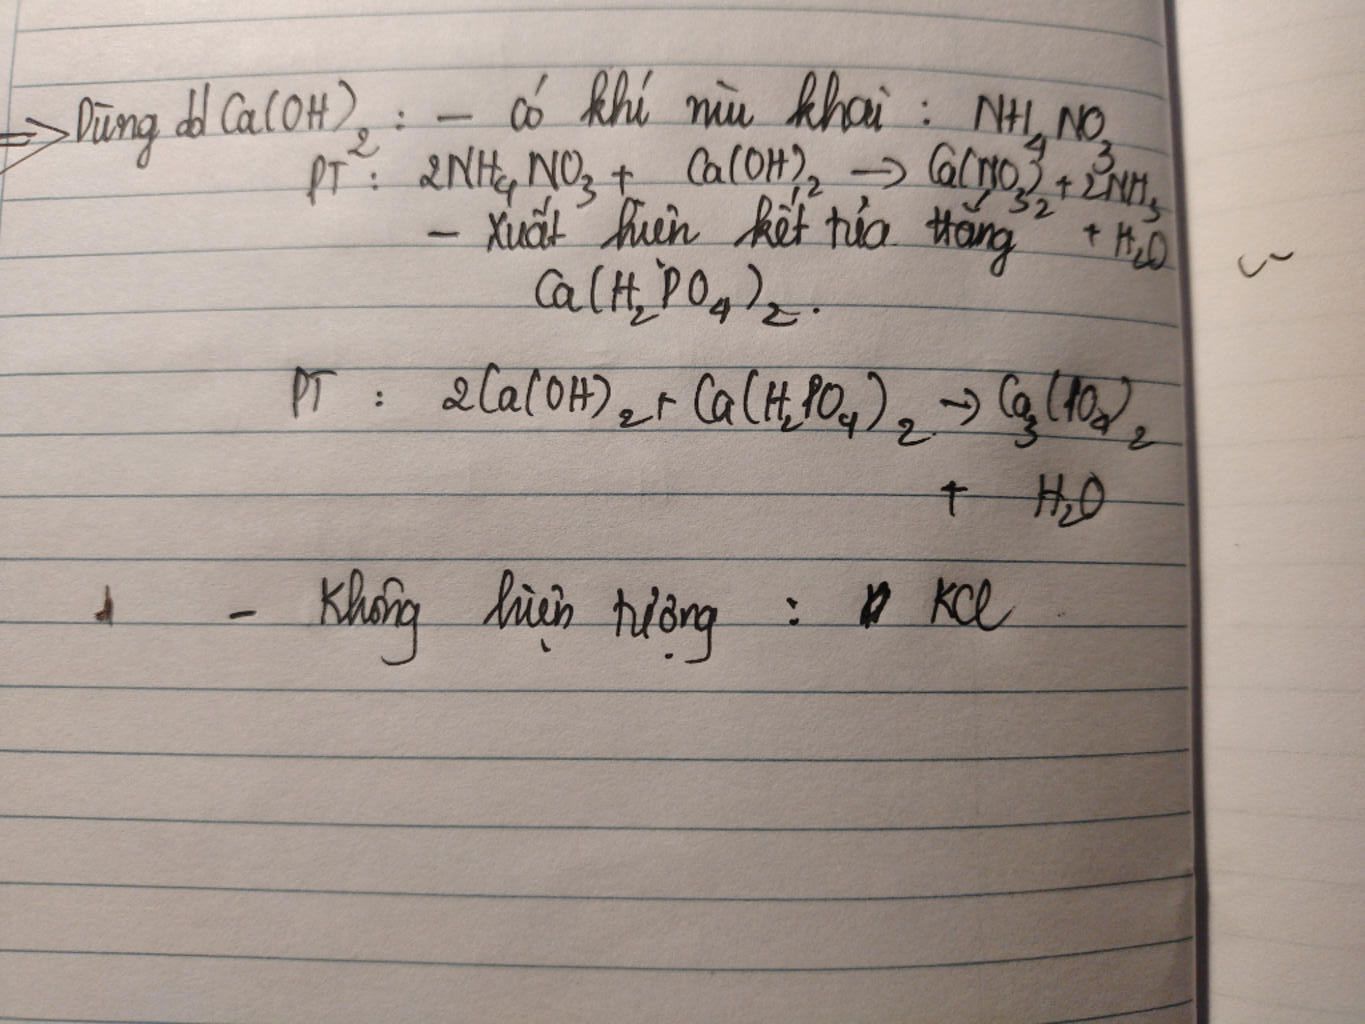 => Dùng dd Ca(OH)₂ : - có khí mùi khai : NH₄NO₃
PT : 2NH₄NO₃ + Ca(OH)₂ → Ca(NO₃)₂ + 2NH₃
+ H₂O
- Xuất hiện kết tủa trắng
Ca(H₂PO₄)₂.
PT : 2Ca(OH)₂ + Ca(H₂PO₄)₂ → Ca₃(PO₄)₂
+ H₂O
- Không hiện tượng : KCl